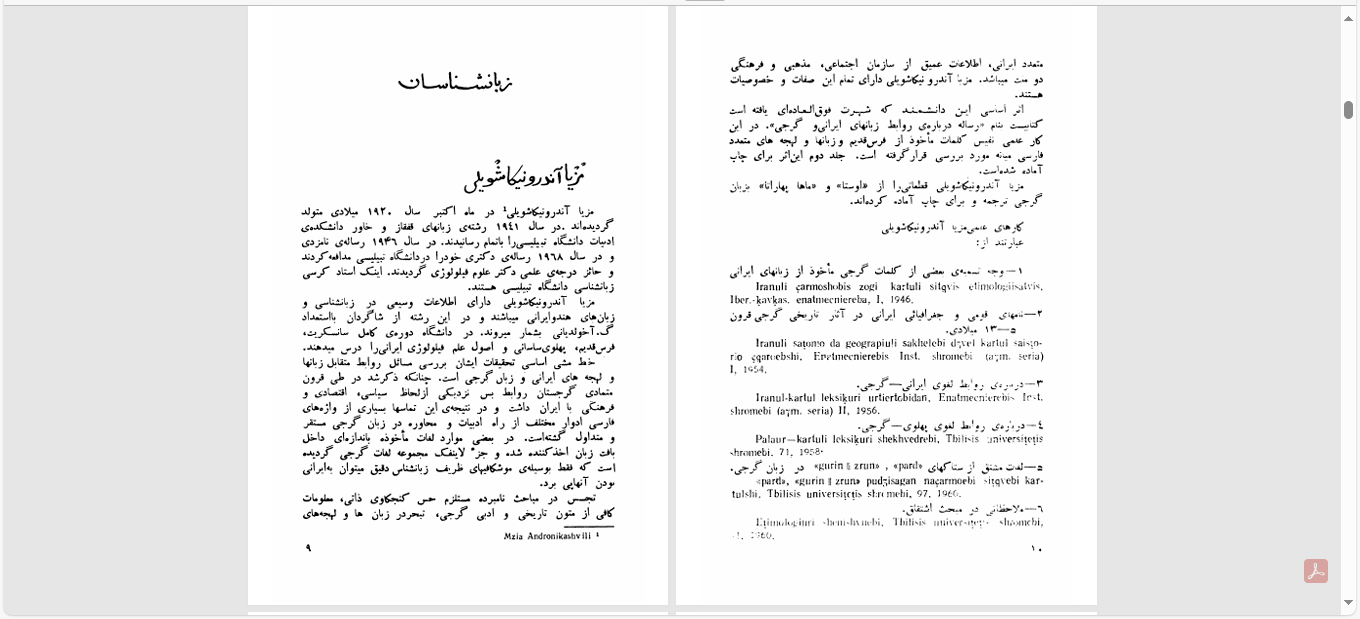 زبانشناسان
مزیا آندرونیکاشویلی
مزیا آندرونیکاشویلی¹ در ماه اکتبر سال ۱۹۲۰ میلادی متولد
گردیده‌اند .در سال ۱۹٤۱ رشته‌ی زبانهای قفقاز و خاور دانشکده‌ی
ادبیات دانشگاه تبیلیسی‌را باتمام رسانیدند. در سال ۱۹۴۶ رساله‌ی نامزدی
و در سال ۱۹٦۸ رساله‌ی دکتری خودرا دردانشگاه تبیلیسی مدافعه‌کردند
و حائز درجه‌ی علمی دکتر علوم فیلولوژی گردیدند. اینک استاد کرسی
زبانشناسی دانشگاه تبیلیسی هستند.
مزیا آندرونیکاشویلی دارای اطلاعات وسیعی در زبانشناسی و
زبان‌های هندوایرانی میباشند و در این رشته از شاگردان بااستعداد
گ.آخولدیانی بشمار میروند. در دانشگاه دوره‌ی کامل سانسکریت،
فرس‌قدیم، پهلوی‌ساسانی و اصول علم فیلولوژی ایرانی‌را درس میدهند.
خط مشی اساسی تحقیقات ایشان بررسی مسائل روابط متقابل زبانها
و لهجه های ایرانی و زبان‌گرجی است. چنانکه ذکرشد در طی قرون
متمادی گرجستان روابط بس نزدیکی ازلحاظ سیاسی، اقتصادی و
فرهنگی با ایران داشت و در نتیجه‌ی این تماسها بسیاری از واژه‌های
فارسی ادوار مختلف از راه ادبیات و محاوره در زبان گرجی مستقر
و متداول گشته‌است. در بعضی موارد لغات مأخوذه باندازه‌ای داخل
بافت زبان اخذکننده شده و جزء لاینفک مجموعه لغات گرجی گردیده
است که فقط بوسیله‌ی موشکافیهای ظریف زبانشناس دقیق میتوان به‌ایرانی
بودن آنهاپی برد.
تجسس در مباحث نامبرده مستلزم حس کنجکاوی ذاتی، معلومات
کافی از متون تاریخی و ادبی گرجی، تبحردر زبان ها و لهجه‌های
¹ Mzia Andronikashvili
۹
متعدد ایرانی، اطلاعات عمیق از سازمان اجتماعی، مذهبی و فرهنگی
دو ملت میباشد. مزیا آندرونیکاشویلی دارای تمام این صفات و خصوصیات
هستند.
اثر اساسی ایـن دانشـمنـد که شهـرت فوق‌العاده‌ای یافته است
کتابیست بنام «رساله درباره‌ی روابط زبانهای ایرانی‌و گرجی». در این
کار علمی نفیس کلمات مأخوذ از فرس‌قدیم و زبانها و لهجه های متعدد
فارسی میانه مورد بررسی قرارگرفته است. جلد دوم این‌اثر برای چاپ
آماده شده‌است.
مزیا آندرونیکاشویلی قطعاتی‌را از «اوستا» و «ماها بهاراتا» بزبان
گرجی ترجمه و برای چاپ آماده کرده‌اند.
کارهای علمی‌مزیا آندرونیکاشویلی
عبارتند از:
۱—وجه تسمیه‌ی بعضی از کلمات گرجی مأخوذ از زبانهای ایرانی
Iranuli çarmoshobis zogi kartuli sitqvis etimologiisatvis,
Iber.-ķavķas. enatmecniereba, I, 1946.
۲—نامهای قومی و جغرافیائی ایرانی در آثار تاریخی گرجی قرون
۵—۱۳ میلادی.
Iranuli saṭomo da geograpiuli sakhelebi dzvel kartul saisṭo-
rio çqaroebshi, Enatmecnierebis Inst. shromebi (aγm. seria)
I, 1954.
۳—درباره‌ی روابط لغوی ایرانی—گرجی.
Iranul-kartul leksiķuri urtiertobidan, Enatmecnierebis Inst.
shromebi (aγm. seria) II, 1956.
٤—درباره‌ی روابط لغوی پهلوی—گرجی.
Palaur—kartuli leksiķuri shekhvedrebi, Tbilisis universiṭeṭis
shromebi, 71, 1958.
۵—لغات مشتق از ستاکهای «pard» , «gurin ‖ zrun» در زبان گرجی.
«pard», «gurin ‖ zrun» pudzisagan naçarmoebi sitqvebi kar-
tulshi, Tbilisis universiṭeṭis shromebi, 97, 1960.
٦—ملاحظاتی در مبحث اشتقاق.
Eṭimologiuri shenishvnebi, Tbilisis universiṭeṭis shromebi,
1960.
۱۰